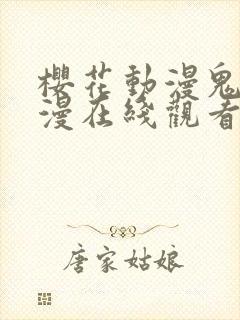 櫻花動漫鬼
漫在綫觀看
唐家姑娘